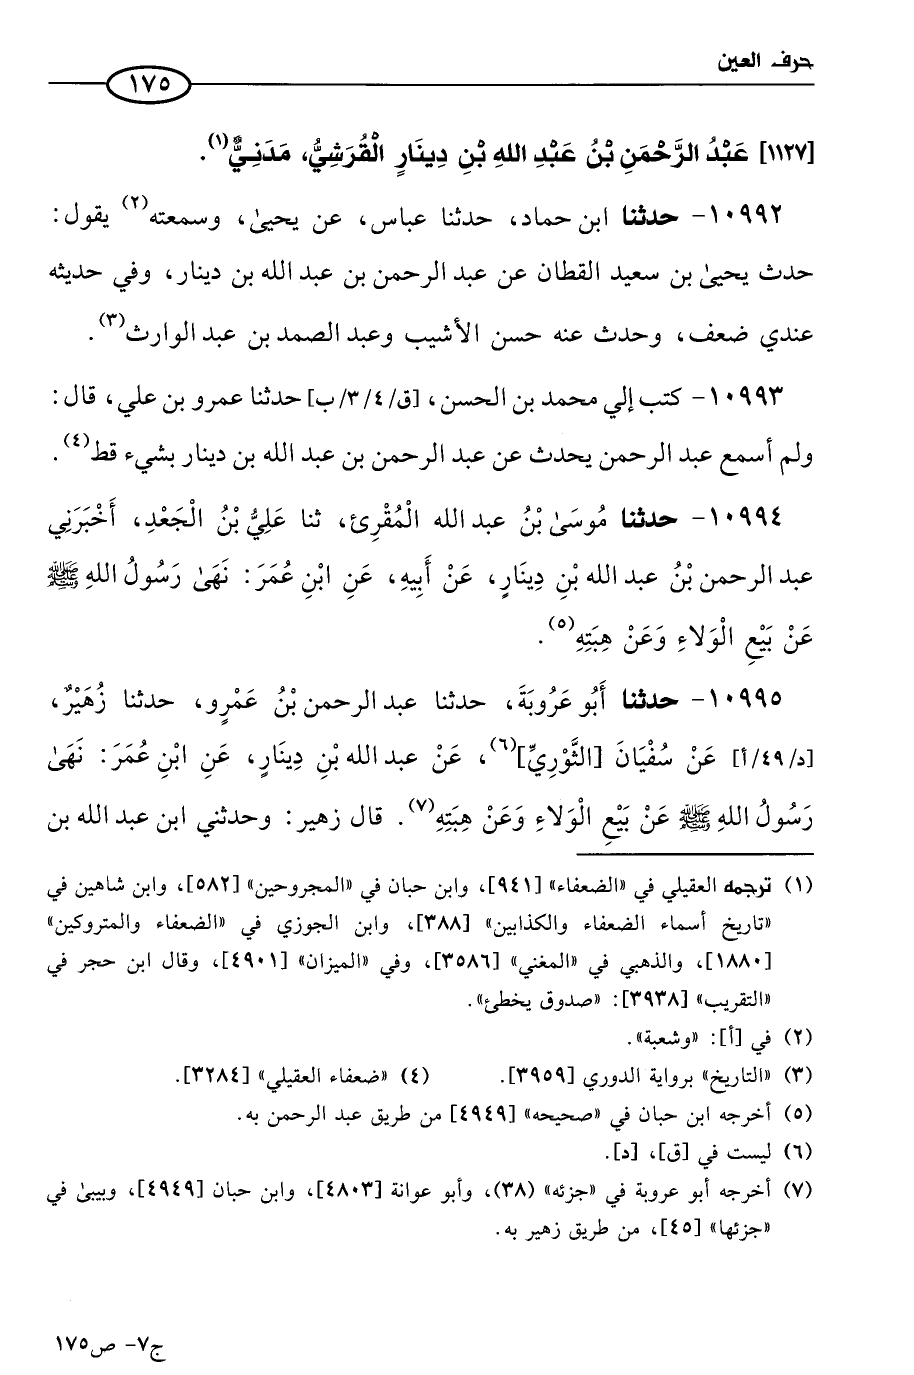 حرف العين
١٧٥
[١١٢٧] عَبْدُ الرَّحْمَنِ بْنُ عَبْدِ اللهِ بْنِ دِينَارٍ الْقُرَشِيُّ، مَدَنِيٌّ(١).
١٠٩٩٢- حدثنا ابن حماد، حدثنا عباس، عن يحيىٰ، وسمعته(٢) يقول:
حدث يحيىٰ بن سعيد القطان عن عبد الرحمن بن عبد الله بن دينار، وفي حديثه
عندي ضعف، وحدث عنه حسن الأشيب وعبد الصمد بن عبد الوارث(٣).
١٠٩٩٣- كتب إلي محمد بن الحسن، [ق/٤/٣/ب] حدثنا عمرو بن علي، قال:
ولم أسمع عبد الرحمن يحدث عن عبد الرحمن بن عبد الله بن دينار بشيء قط(٤).
١٠٩٩٤- حدثنا مُوسَىٰ بْنُ عبد الله الْمُقْرِئ، ثنا عَلِيُّ بْنُ الْجَعْدِ، أَخْبَرَنِي
عبد الرحمن بْنُ عبد الله بْنِ دِينَارٍ، عَنْ أَبِيهِ، عَنِ ابْنِ عُمَرَ: نَهَىٰ رَسُولُ اللهِ ﷺ
عَنْ بَيْعِ الْوَلاءِ وَعَنْ هِبَتِهِ(٥).
١٠٩٩٥- حدثنا أَبُو عَرُوبَةَ، حدثنا عبد الرحمن بْنُ عَمْرٍو، حدثنا زُهَيْرٌ،
[د/٤٩/أ] عَنْ سُفْيَانَ [الثَّوْرِيِّ](٦)، عَنْ عبد الله بْنِ دِينَارٍ، عَنِ ابْنِ عُمَرَ: نَهَىٰ
رَسُولُ اللهِ ﷺ عَنْ بَيْعِ الْوَلاءِ وَعَنْ هِبَتِهِ(٧). قال زهير: وحدثني ابن عبد الله بن
(١) ترجمه العقيلي في «الضعفاء» [٩٤١]، وابن حبان في «المجروحين» [٥٨٢]، وابن شاهين في
«تاريخ أسماء الضعفاء والكذابين» [٣٨٨]، وابن الجوزي في «الضعفاء والمتروكين»
[١٨٨٠]، والذهبي في «المغني» [٣٥٨٦]، وفي «الميزان» [٤٩٠١]، وقال ابن حجر في
«التقريب» [٣٩٣٨]: «صدوق يخطئ».
(٢) في [أ]: «وشعبة».
(٣) «التاريخ» برواية الدوري [٣٩٥٩]. (٤) «ضعفاء العقيلي» [٣٢٨٤].
(٥) أخرجه ابن حبان في «صحيحه» [٤٩٤٩] من طريق عبد الرحمن به.
(٦) ليست في [ق]، [د].
(٧) أخرجه أبو عروبة في «جزئه» (٣٨)، وأبو عوانة [٤٨٠٣]، وابن حبان [٤٩٤٩]، وبيبىٰ في
«جزئها» [٤٥]، من طريق زهير به.
ج٧- ص١٧٥